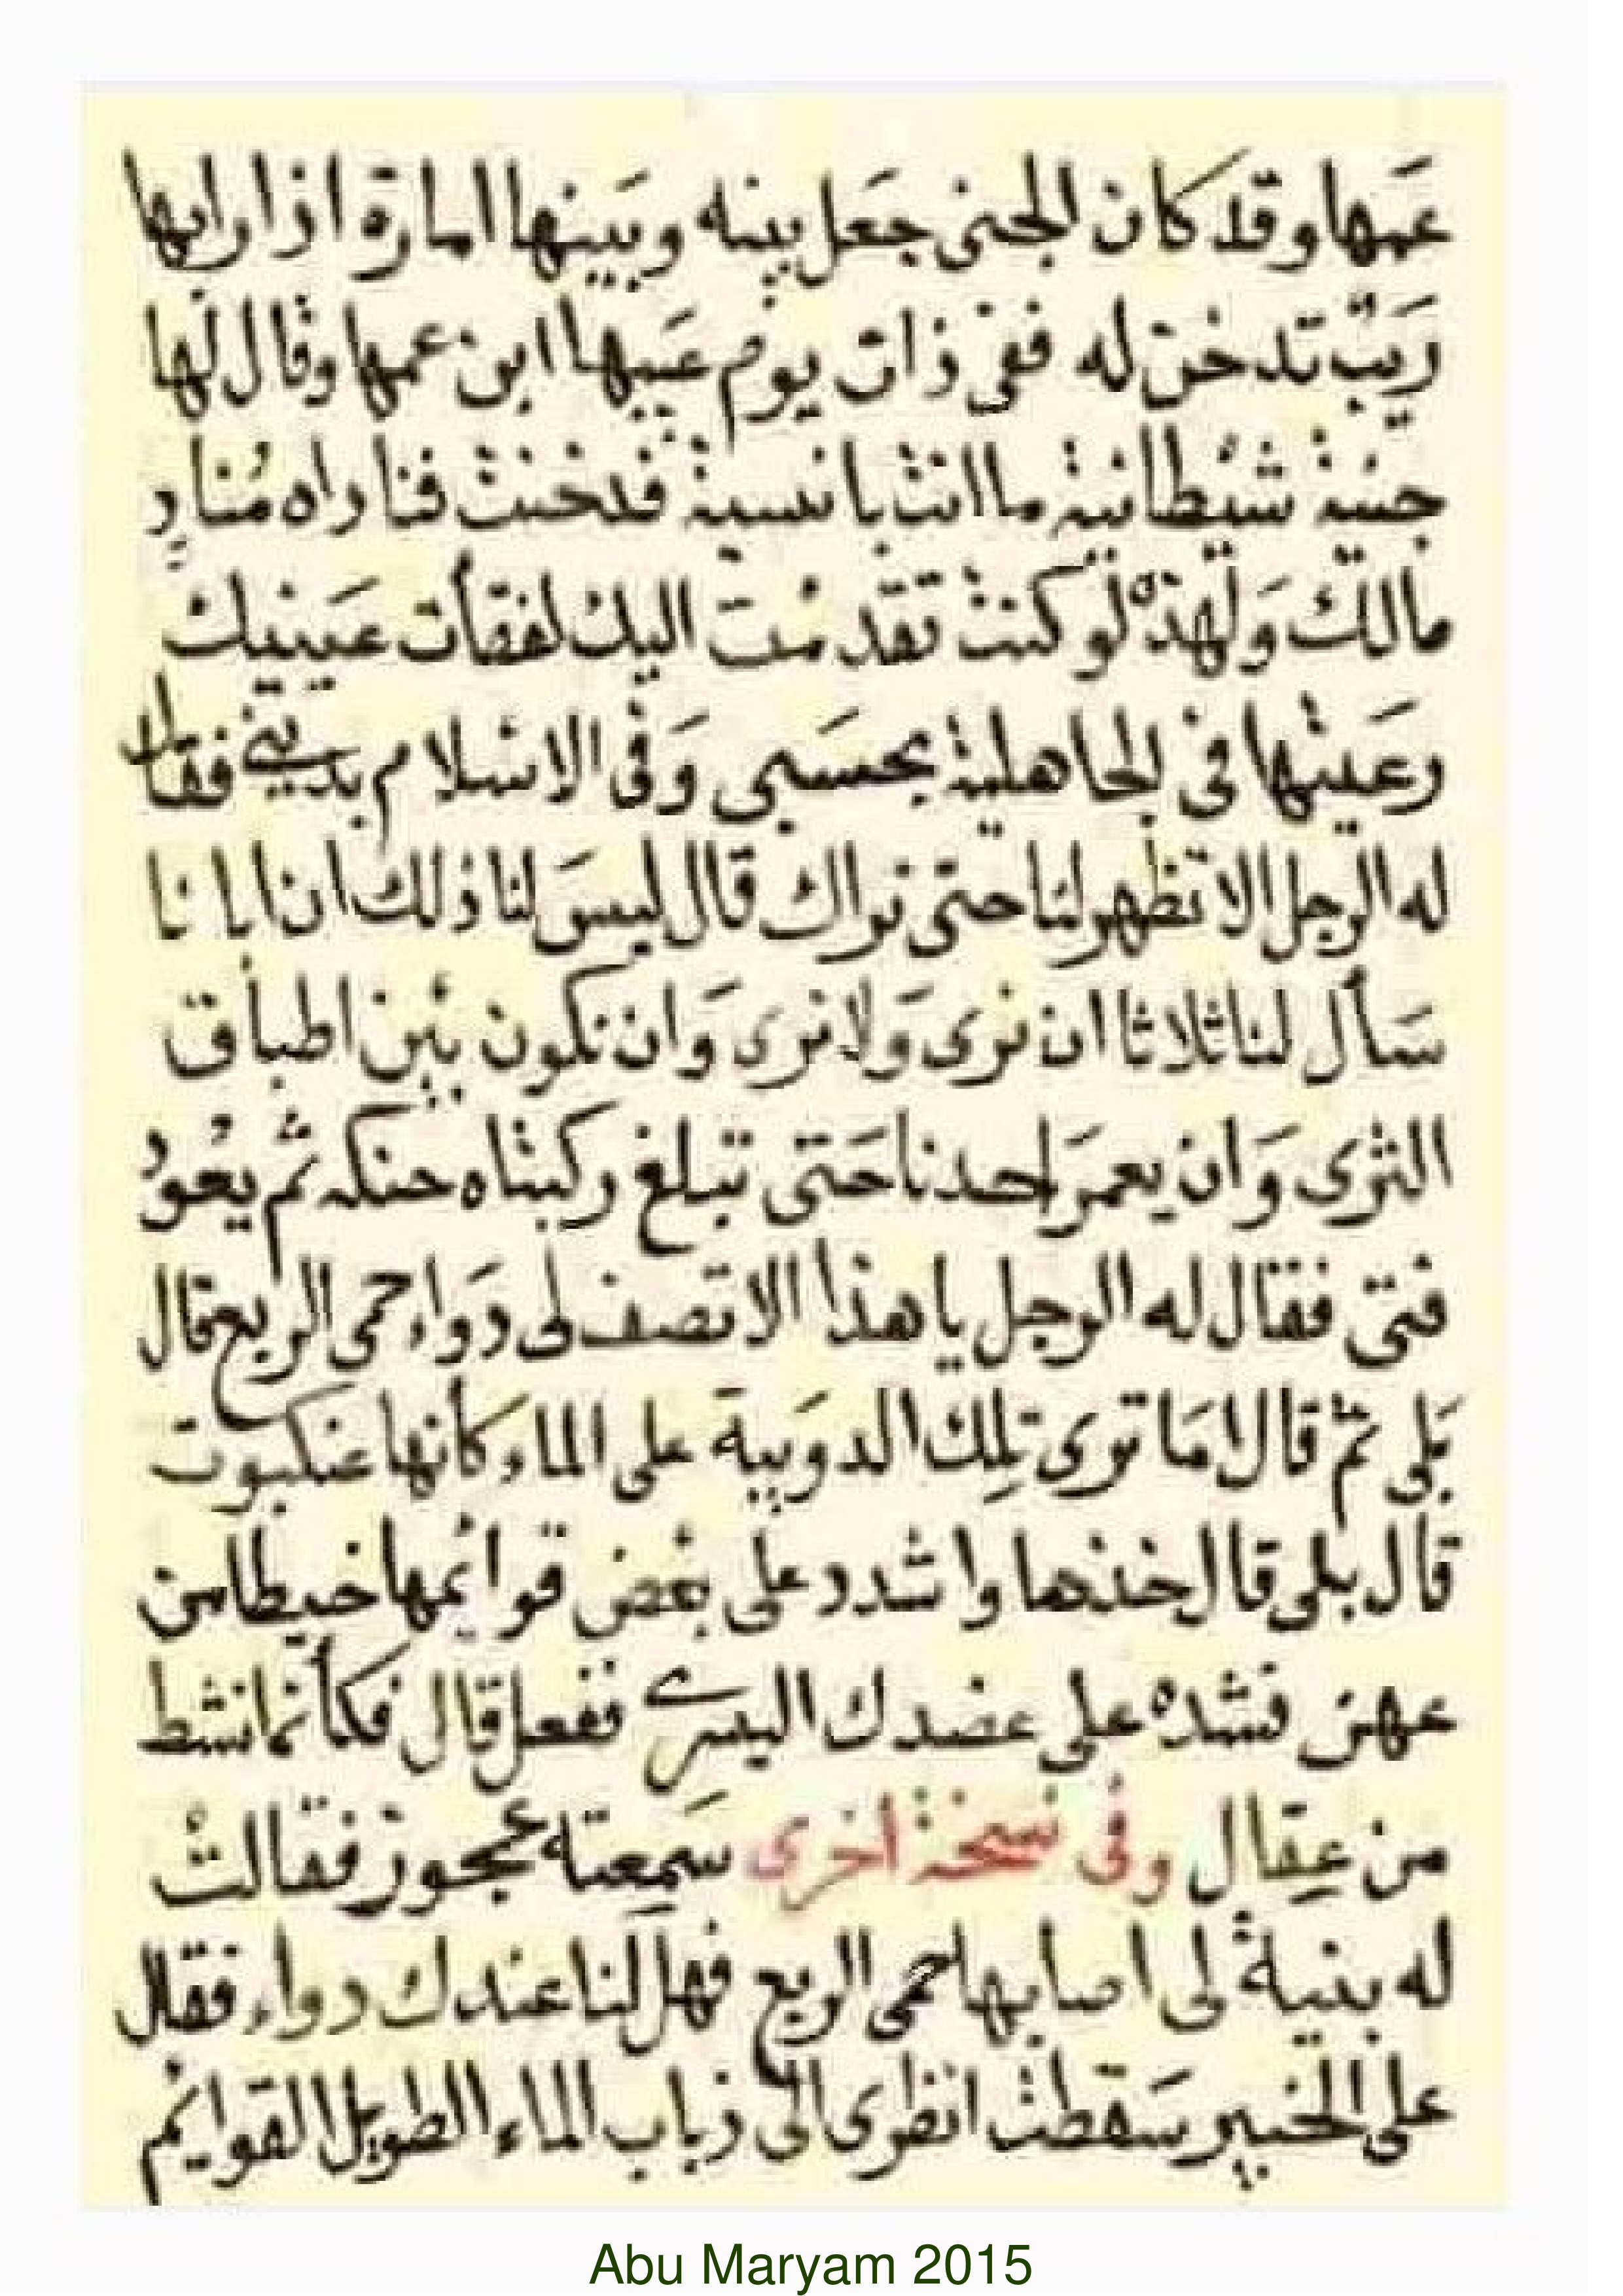 عمها وقد كان الجنى جعل بينه وبينها امارة اذا رابها
ريب تدخن له ففى ذات يوم عيبها ابن عمها وقال لها
جنية شيطانية ما انت بانسية فدخنت فناداه مناد
مالك ولهذه لو كنت تقدمت اليك لفقأت عينيك
رعيتها فى الجاهلية بحسبى وفى الاسلام بدينى فقال
له الرجل الا تظهر لنا حتى نراك قال ليس لنا ذلك ان ابانا
سأل لنا ثلاثا ان نرى ولا نرى وان نكون بين اطباق
الثرى وان يعمر احدنا حتى تبلغ ركبتاه حنكه ثم يعود
فتى فقال له الرجل يا هذا الا تصف لى دواء حمى الربع قال
بلى ثم قال اما ترى تلك الدويبة على الماء كأنها عنكبوت
قال بلى قال خذها واشدد على بعض قوائمها خيطا من
عهن فشده على عضدك اليسرى ففعل قال فكأنما نشط
من عقال وفى نسخة اخرى سمعته عجوز فقالت
له بنية لى اصابها حمى الربع فهل لنا عندك دواء فقال
على الخبير سقطت انظرى الى ذباب الماء الطويل القوائم
Abu Maryam 2015